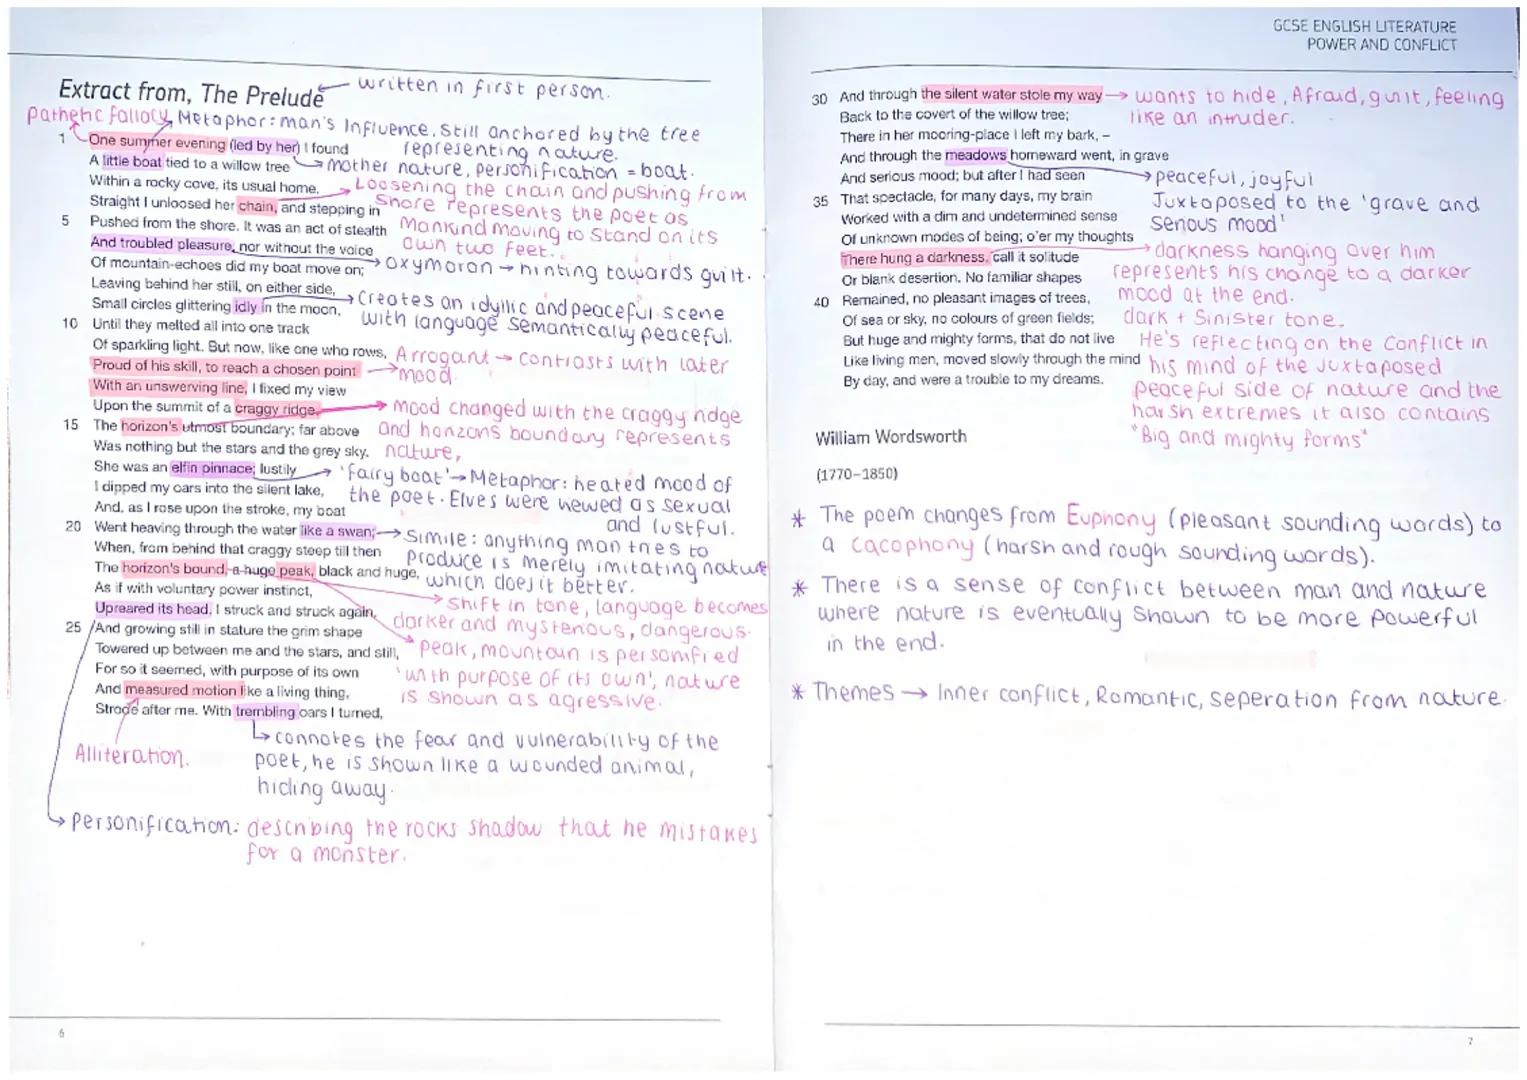 GCSE ENGLISH LITERATURE
POWER AND CONFLICT
Extract from, The Prelude
written in first person.
Pathetic fallacy
Metaphor: man's Influence. Still anchored by the tree
representing nature.
1 One summer evening (led by her) I found
A little boat tied to a willow tree
mother nature, Personification = boat.
Within a rocky cove, its usual home.
Loosening the chain and pushing from
Shore represents the poet as
Mankind moving to Stand on its
own two feet.
Straight I unloosed her chain, and stepping in
5 Pushed from the shore. It was an act of stealth
And troubled pleasure, nor without the voice
Oxymoron → hinting towards guilt.
Of mountain-echoes did my boat move on;
Leaving behind her still, on either side,
Small circles glittering idly in the moon,
Creates an idyllic and peaceful scene
with language semantically peaceful.
10 Until they melted all into one track
Of sparkling light. But now, like one who rows,
Proud of his skill, to reach a chosen point
Arrogant → contrasts with later
mood.
With an unswerving line, I fixed my view
Upon the summit of a craggy ridge,
Mood changed with the craggy ridge
and horizons boundary represents
nature,
15 The horizon's utmost boundary; far above
Was nothing but the stars and the grey sky.
She was an elfin pinnace; lustily
'fairy boat' → Metaphor: heated mood of
the poet. Elves were viewed as sexual
and lustful.
I dipped my oars into the silent lake,
And, as I rose upon the stroke, my boat
20 Went heaving through the water like a swan;
Simile: anything man tries to
produce is merely imitating nature
which does it better.
When, from behind that craggy steep till then
The horizon's bound, a huge peak, black and huge,
Shift in tone, language becomes
darker and mysterious, dangerous.
As if with voluntary power instinct,
Upreared its head. I struck and struck again,
25 And growing still in stature the grim shape
Peak, mountain is personified
'with purpose of its own', nature
is shown as agressive.
Towered up between me and the stars, and still,
For so it seemed, with purpose of its own
And measured motion like a living thing,
Strode after me. With trembling oars I turned,
Alliteration.
connotes the fear and vulnerability of the
poet, he is shown like a wounded animal,
hiding away.
Personification: describing the rocks shadow that he mistakes
for a monster.
6
30 And through the silent water stole my way
wants to hide, Afraid, guilt, feeling
like an intruder.
Back to the covert of the willow tree;
There in her mooring-place I left my bark, –
And through the meadows homeward went, in grave
peaceful, joyful
Juxtaposed to the 'grave and
serious mood'
And serious mood; but after I had seen
35 That spectacle, for many days, my brain
Worked with a dim and undetermined sense
Of unknown modes of being; o'er my thoughts
There hung a darkness, call it solitude
darkness hanging over him
represents his change to a darker
mood at the end.
dark + Sinister tone.
Or blank desertion. No familiar shapes
40 Remained, no pleasant images of trees,
Of sea or sky, no colours of green fields;
But huge and mighty forms, that do not live
He's reflecting on the conflict in
his mind of the juxtaposed
peaceful side of nature and the
harsh extremes it also contains
"Big and mighty forms"
Like living men, moved slowly through the mind
By day, and were a trouble to my dreams.
William Wordsworth
(1770–1850)
* The poem changes from Euphony (pleasant sounding words) to
a Cacophony (harsh and rough sounding words).
* There is a sense of conflict between man and nature
where nature is eventually shown to be more powerful
in the end.
* Themes → Inner conflict, Romantic, seperation from nature.
7